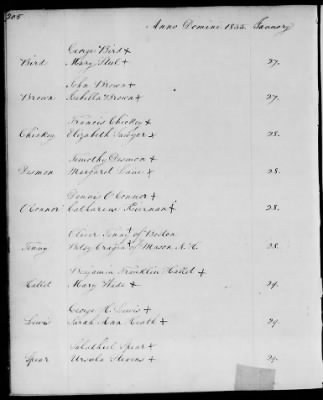 205
Anno Domini 1835. January
George Bird +
Bird Mary Steel + 27.
John Brown +
Brown Isabella Brown + 27.
Francis Chickey +
Chickey Elizabeth Sawyer + 28.
Timothy Desmon +
Desmon Margaret Lane + 28.
Dennis O'Connor +
O'Connor Catharine Kiernan + 28.
Oliver Tenny + of Boston
Tenny Betsy Cragin + of Mason N.H. 28.
Benjamin Franklin Hallet +
Hallet Mary Wade + 29.
George H. Lewis +
Lewis Sarah Ann Heath + 29.
Salathiel Spear +
Spear Ursula Stevens + 29.